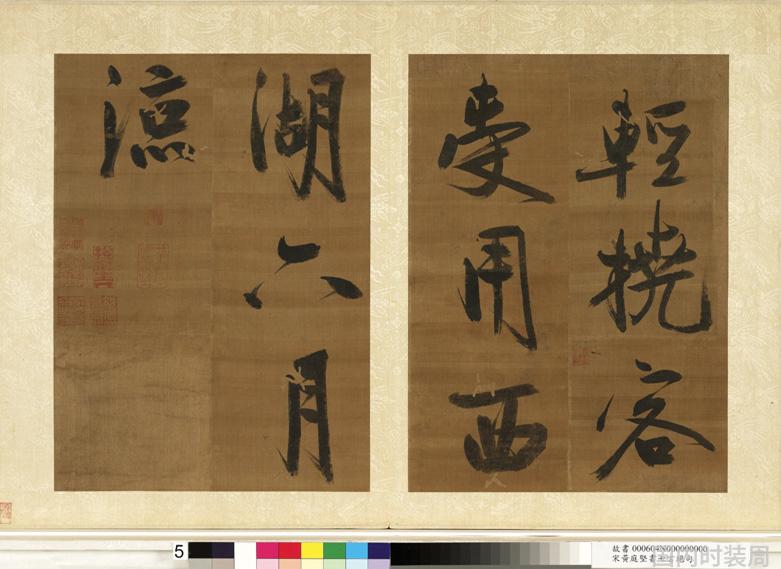 輕撓客
受用西
湖六月
涼
5
故書 000604N000000000
宋黃庭堅書
时装周